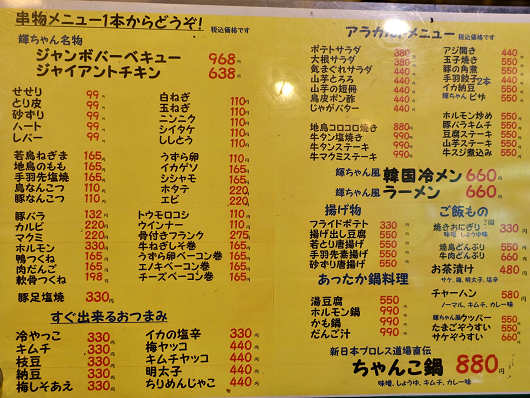 串物メニュー1本からどうぞ! 税込価格です
輝ちゃん名物
ジャンボバーベキュー 968円
ジャイアントチキン 638円
せせり 99円
とり皮 99円
砂ずり 99円
ハート 99円
レバー 99円
白ねぎ 110円
玉ねぎ 110円
ニンニク 110円
シイタケ 110円
ししとう 110円
若鳥ねぎま 165円
地鳥のもも 165円
手羽先塩焼 165円
鳥なんこつ 165円
豚なんこつ 165円
うずら卵 110円
イカゲソ 165円
シシャモ 165円
ホタテ 220円
エビ 220円
豚バラ 132円
カルビ 220円
マクミ 220円
ホルモン 330円
鴨つくね 165円
肉だんご 165円
軟骨つくね 198円
トウモロコシ 110円
ウインナー 110円
骨付きフランク 275円
牛ねぎしそ巻 165円
うずら卵ベーコン巻 165円
エノキベーコン巻 165円
チーズベーコン巻 165円
豚足塩焼 330円
すぐ出来るおつまみ
冷やっこ 330円
キムチ 330円
枝豆 330円
納豆 330円
梅しそあえ 330円
イカの塩辛 330円
梅ヤッコ 440円
キムチヤッコ 440円
明太子 440円
ちりめんじゃこ 440円
アラカルトメニュー 税込価格です
ポテトサラダ 380円
大根サラダ 380円
気まぐれサラダ 550円
山芋とろろ 440円
山芋の短冊 440円
鳥皮ポン酢 440円
じゃがバター 440円
地鳥コロコロ焼き 880円
牛タン塩焼き 990円
牛タンステーキ 990円
牛マクミステーキ 990円
アジ開き 440円
玉子焼き 550円
豚の角煮 550円
手羽餃子2本 440円
イカ納豆 550円
輝ちゃん ピザ 550円
ホルモン炒め 550円
豚バラキムチ 550円
豆腐ステーキ 550円
山芋ステーキ 550円
牛スジ煮込み 550円
輝ちゃん風 韓国冷メン 660円
輝ちゃん風 ラーメン 660円
揚げ物
フライドポテト 330円
揚げ出し豆腐 550円
若とり唐揚げ 550円
手羽先素揚げ 550円
砂ずり唐揚げ 550円
あったか鍋料理
湯豆腐 550円
ホルモン鍋 990円
かも鍋 990円
だんご汁 990円
ご飯もの
焼きおにぎり 330円
味噌、しょうゆ味
焼鳥どんぶり 550円
牛肉どんぶり 660円
お茶漬け 480円
サケ、梅、明太子、塩辛
チャーハン 580円
ノーマル、キムチ、カレー味
輝ちゃん風クッパー 550円
たまごぞうすい 550円
サケぞうすい 660円
新日本プロレス道場直伝
ちゃんこ鍋 880円
味噌、しょうゆ、キムチ、カレー味